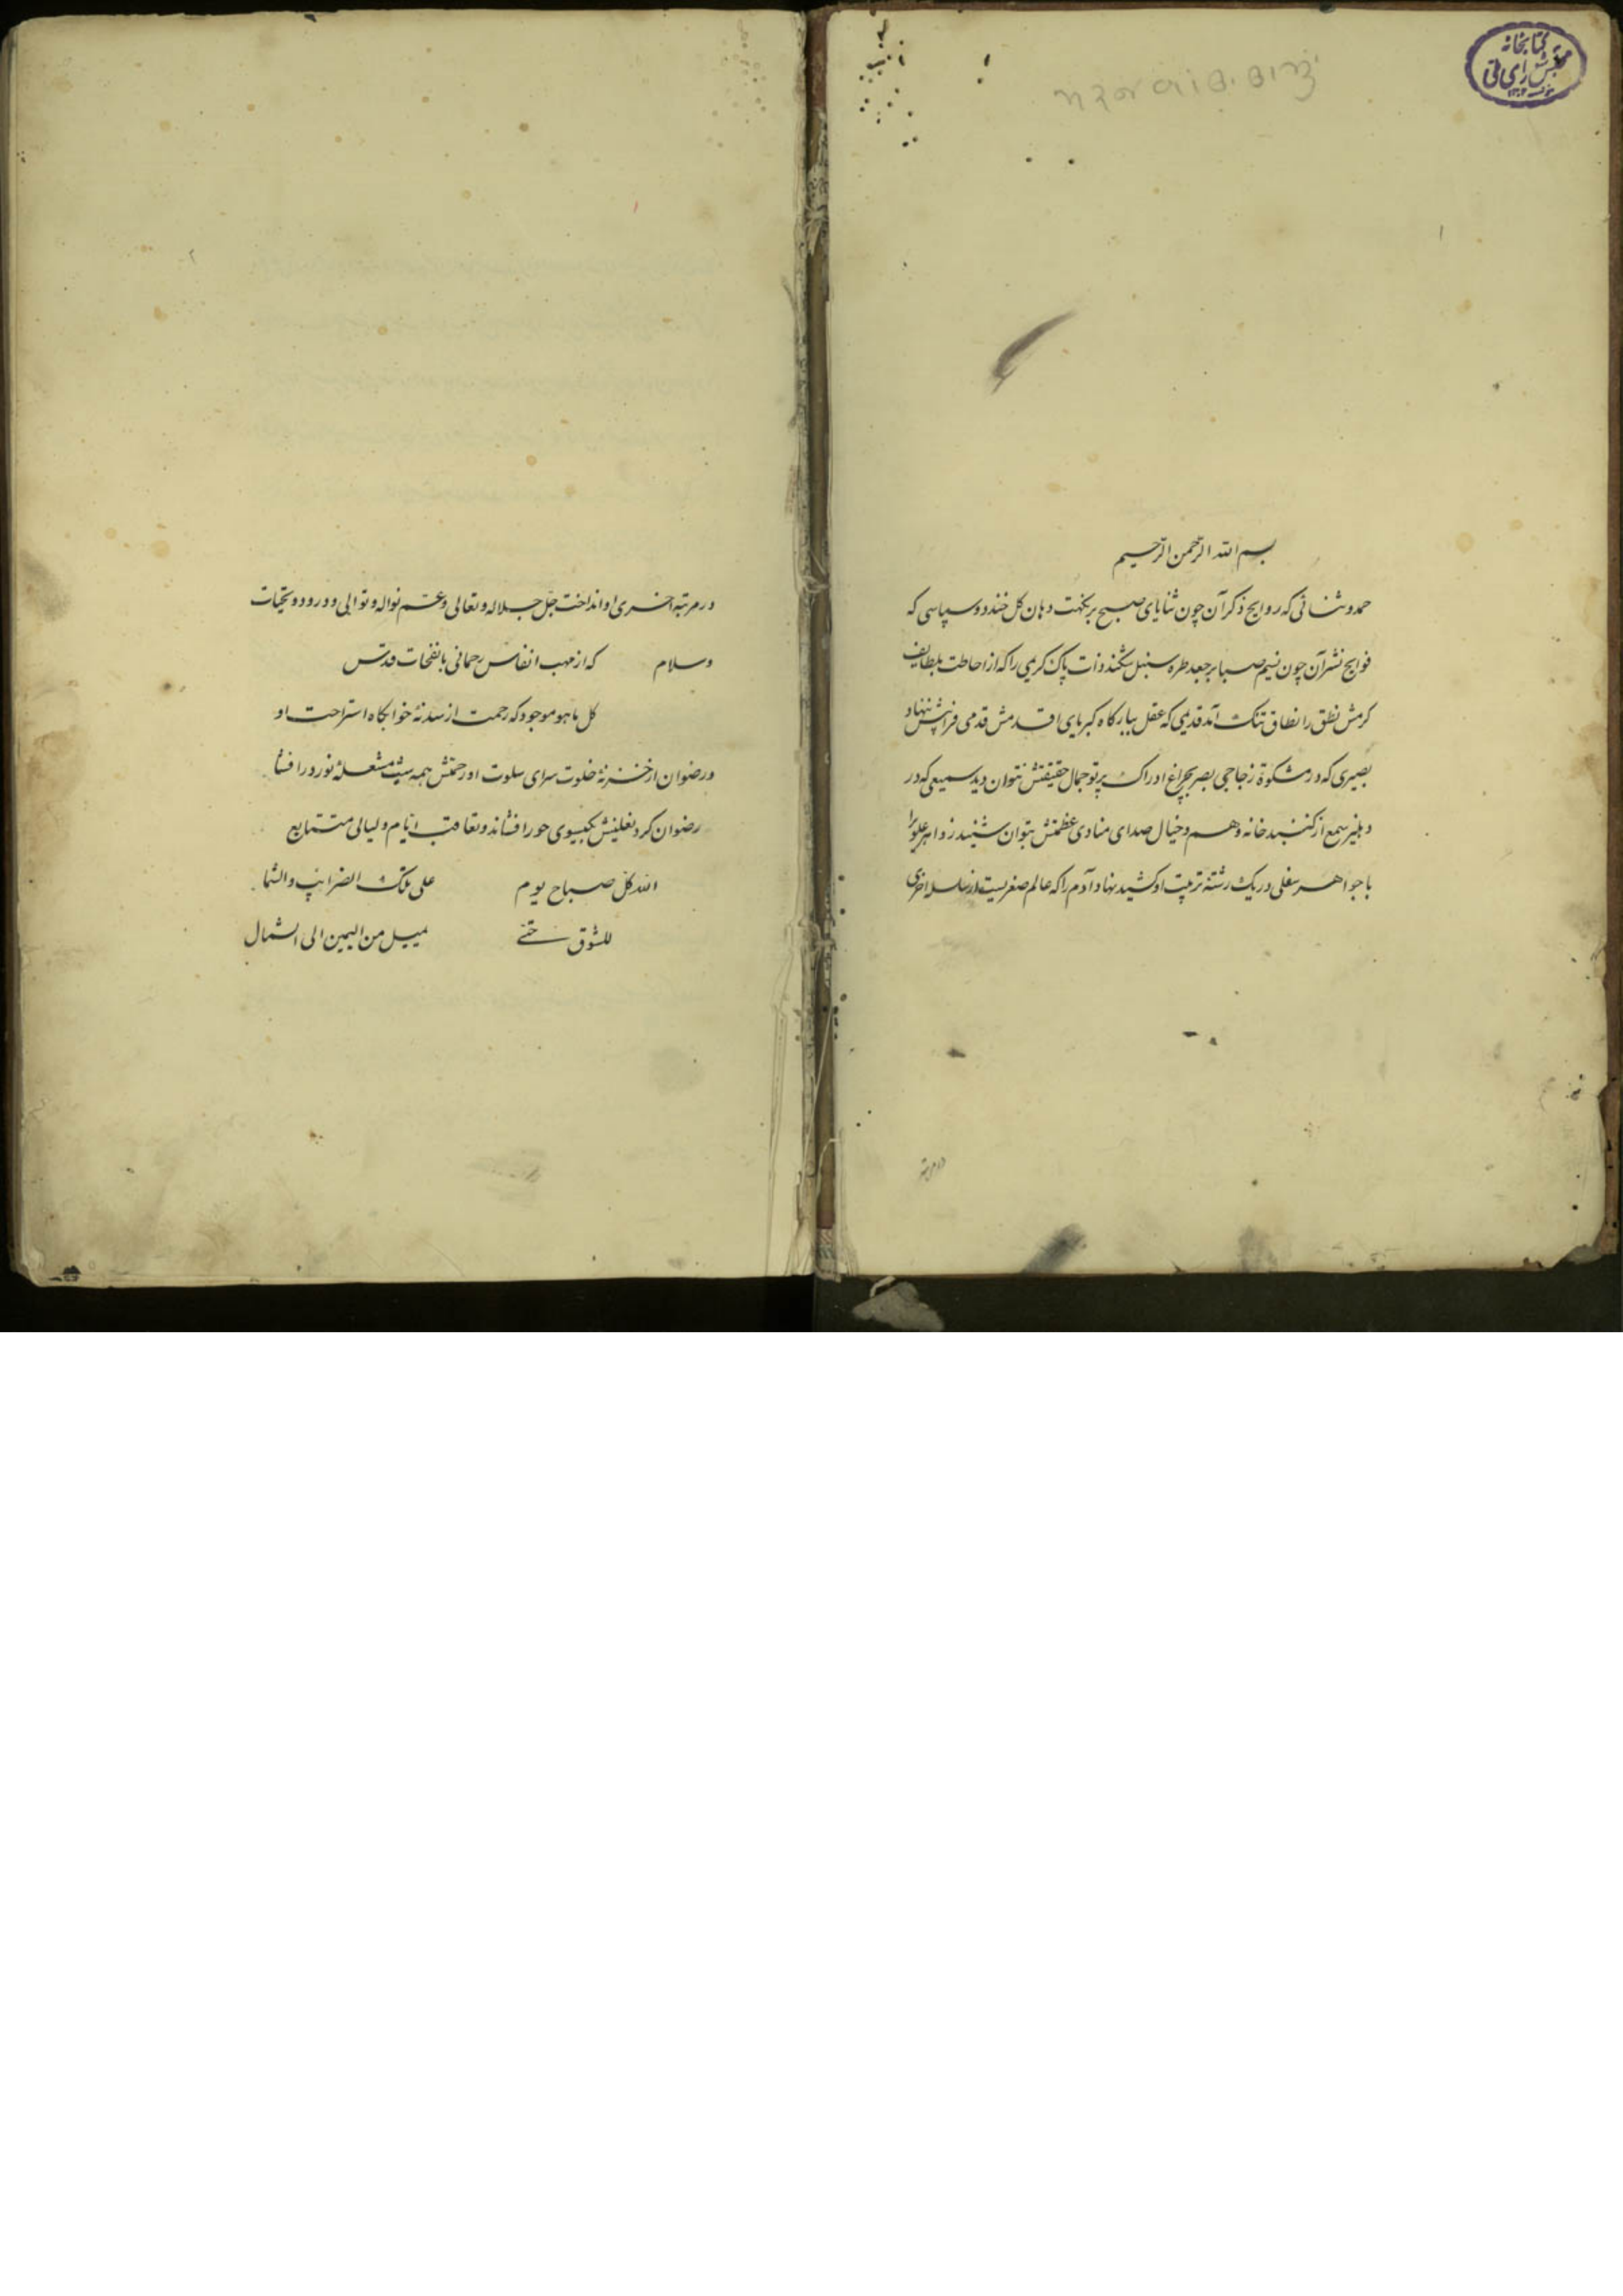 کتابخانه
مجلس شورای ملی
۱
بسم الله الرحمن الرحیم
حمد و ثنائی که روایح ذکر آن چون ثنایای صبح بر نکهت دهان کل خندد و سپاسی که
فوایح نشر آن چون نسیم صبا بر جعد طره سنبل شکند ذات پاک کریمی را که از احاطت بلطایف
کرمش نطق را نطاق تنک آمد قدیمی که عقل ببارکاه کبریای اقدمش قدمی فراپیش ننهاد
بصیری که در مشکوة زجاجی بصر بچراغ ادراک پرتو جمال حقیقتش نتوان دید سمیعی که در
دهلیز سمع از کنبد خانه وهم و خیال صدای منادی عظمتش نتوان شنید زواهر علوی را
با جواهر سفلی در یک رشته ترتیب او کشید نهاد آدم را که عالم صغریست از سلسله اخری
در مرتبه
۲
در مرتبه اخری او انداخت جل جلاله و تعالی و عم نواله و توالی و درود و تحیات
وسلام که از مهب انفاس رحمانی بانفحات قدس
کل ما هو موجود که رحمت از سدنهٔ خوابکاه استراحت او
و رضوان از خزنهٔ خلوت سرای سلوت او رحمتش همه شب مشعلهٔ نور در افشا
رضوان کرد نعلینش بکیسوی حور افشاند و تعاقب ایام و لیالی متتابع
الله کل صباح یوم علی تلک الضرایب والشما
للشوق حتی یمیل من الیمین الی الشمال